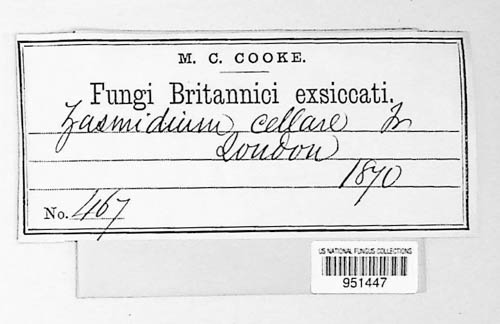 M. C. COOKE.
Fungi Britannici exsiccati.
Zasmidium cellare Fr
London
1870
No. 467
US NATIONAL FUNGUS COLLECTIONS
951447